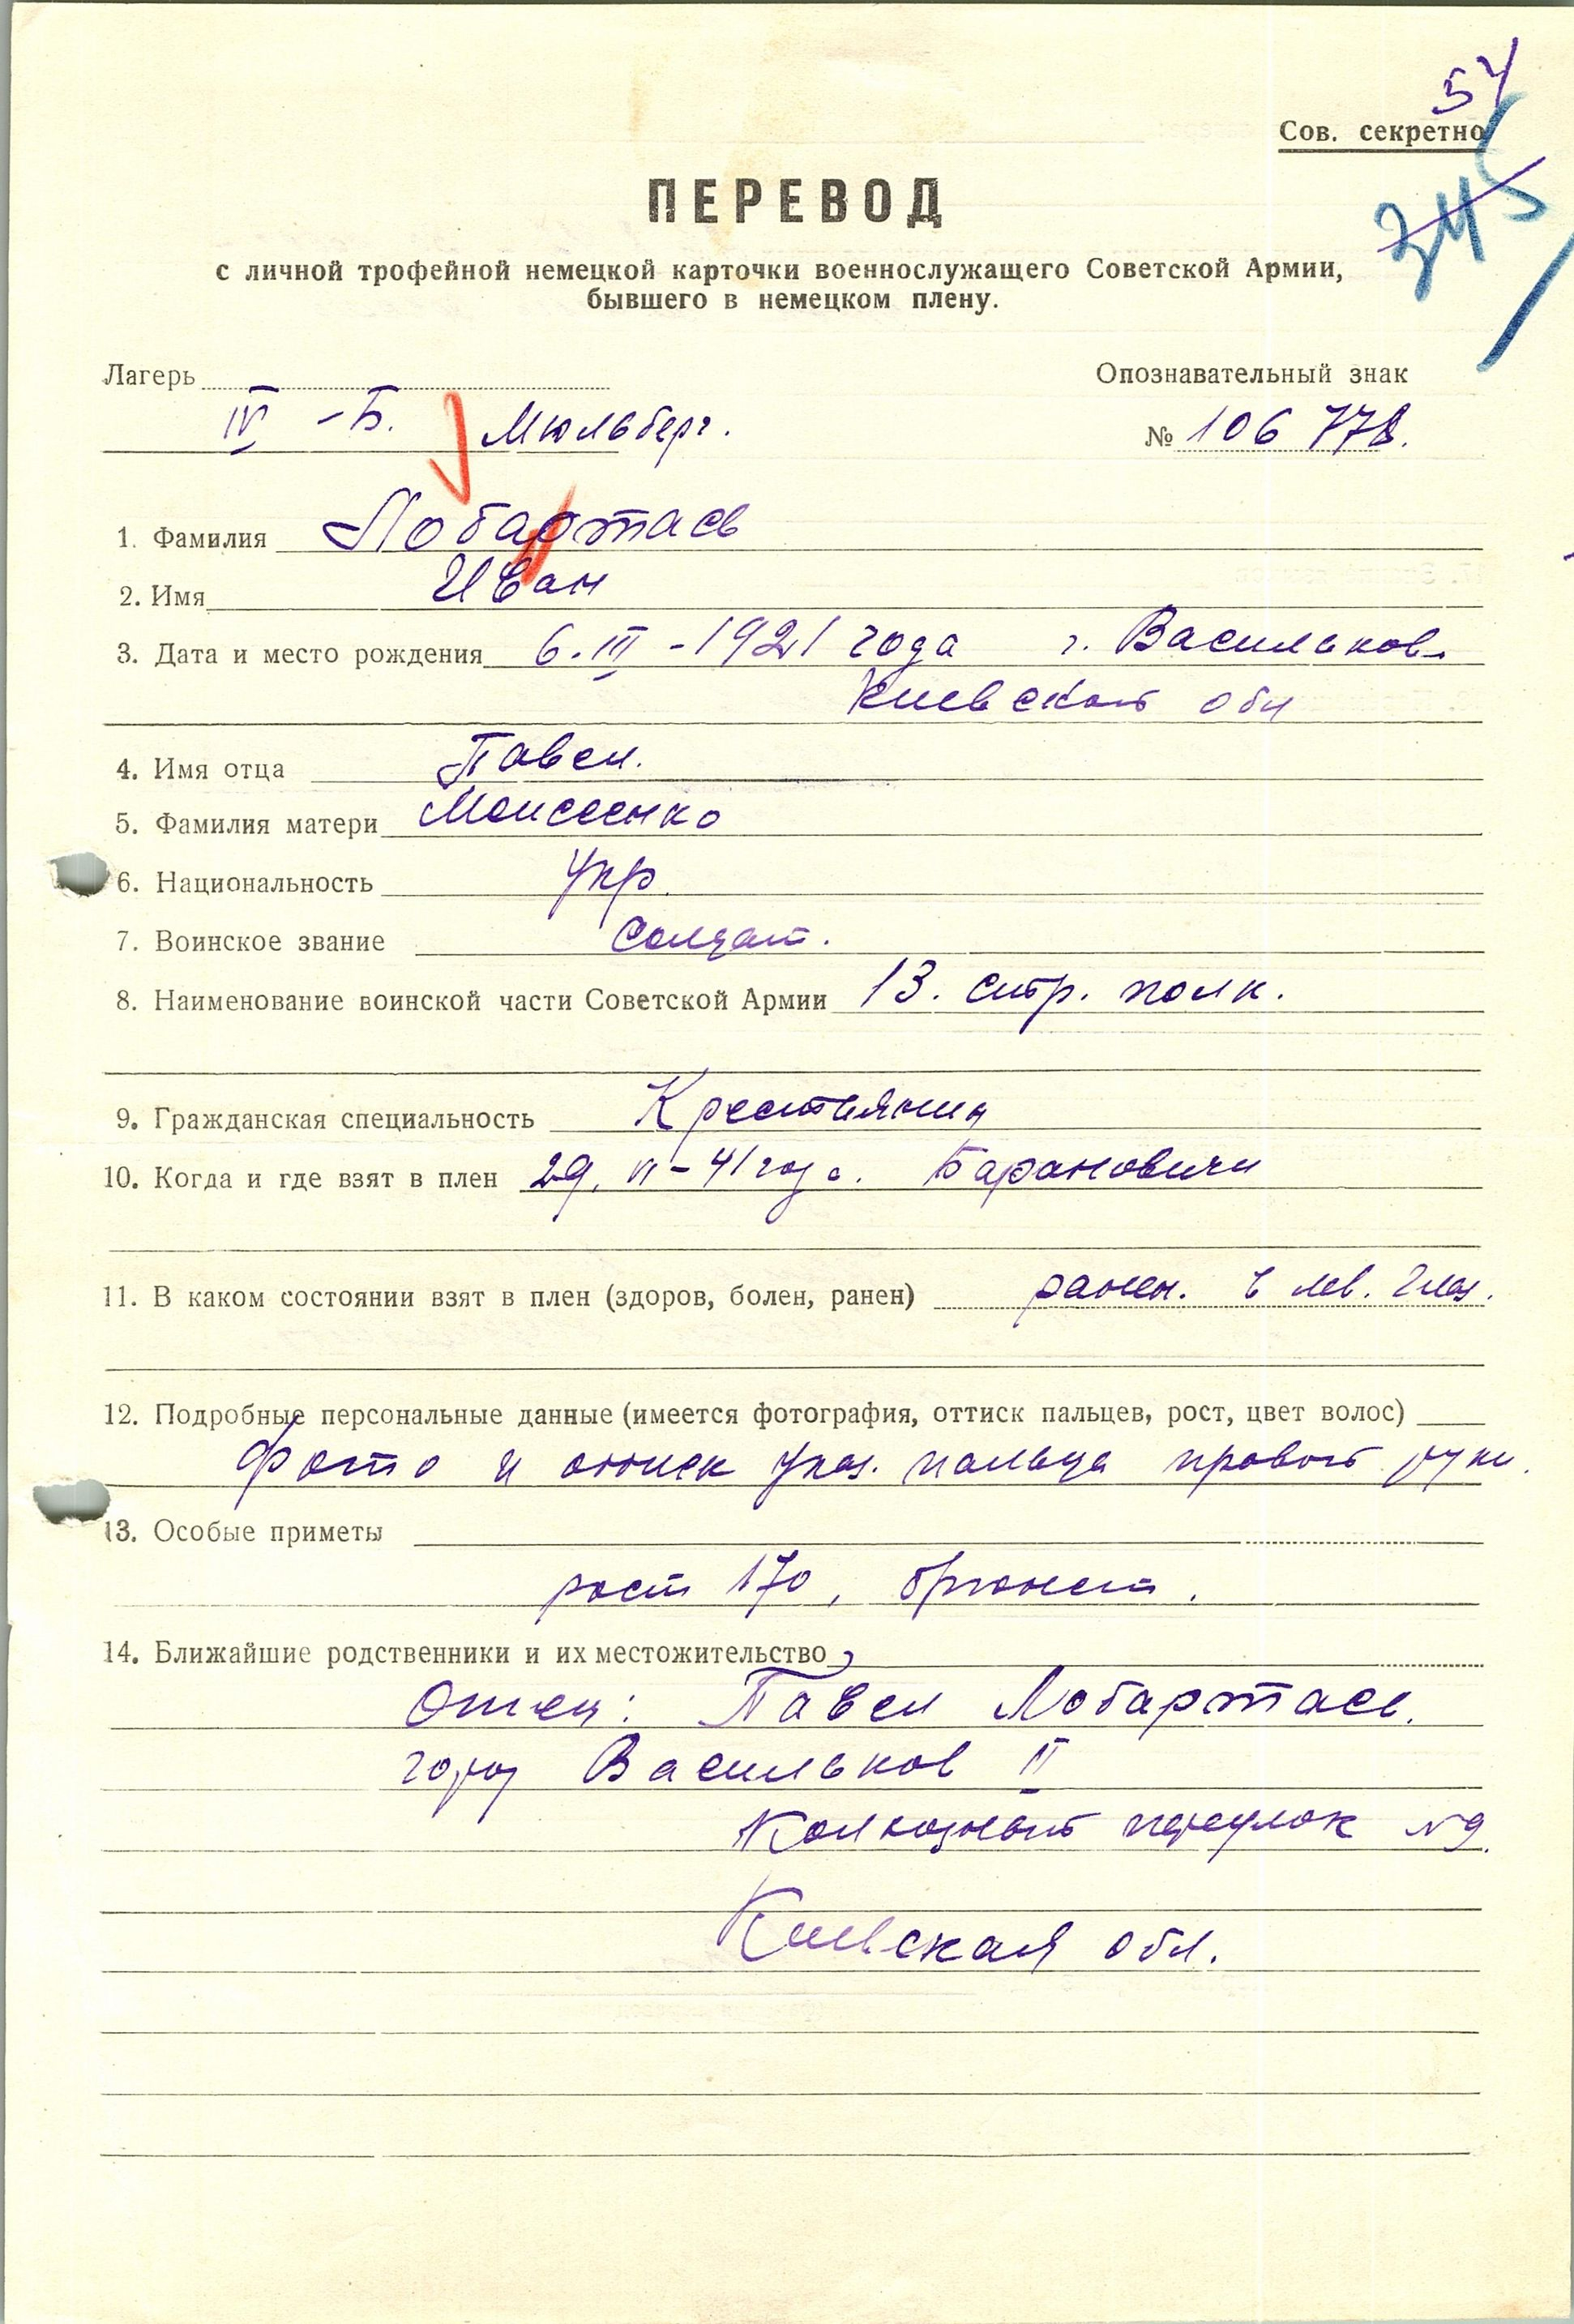 54
Сов. секретно
245
ПЕРЕВОД
с личной трофейной немецкой карточки военнослужащего Советской Армии,
бывшего в немецком плену.
Лагерь
Опознавательный знак
IV -Б. Мюльберг.
№ 106 778.
1. Фамилия Лобартась
2. Имя Иван
3. Дата и место рождения 6.III -1921 года г. Васильков
Киевской обл
4. Имя отца Павел.
5. Фамилия матери Моисеенко
6. Национальность Укр.
7. Воинское звание Солдат.
8. Наименование воинской части Советской Армии 13. стр. полк.
9. Гражданская специальность Крестьянин
10. Когда и где взят в плен 29. VI-41 года. Барановичи
11. В каком состоянии взят в плен (здоров, болен, ранен) ранен. в лев. глаз.
12. Подробные персональные данные (имеется фотография, оттиск пальцев, рост, цвет волос)
Фото и оттиск указ. пальца правой руки.
13. Особые приметы
рост 170, брюнет.
14. Ближайшие родственники и их местожительство
Отец: Павел Лобартась.
город Васильков II
Колхозный переулок N9.
Киевская обл.